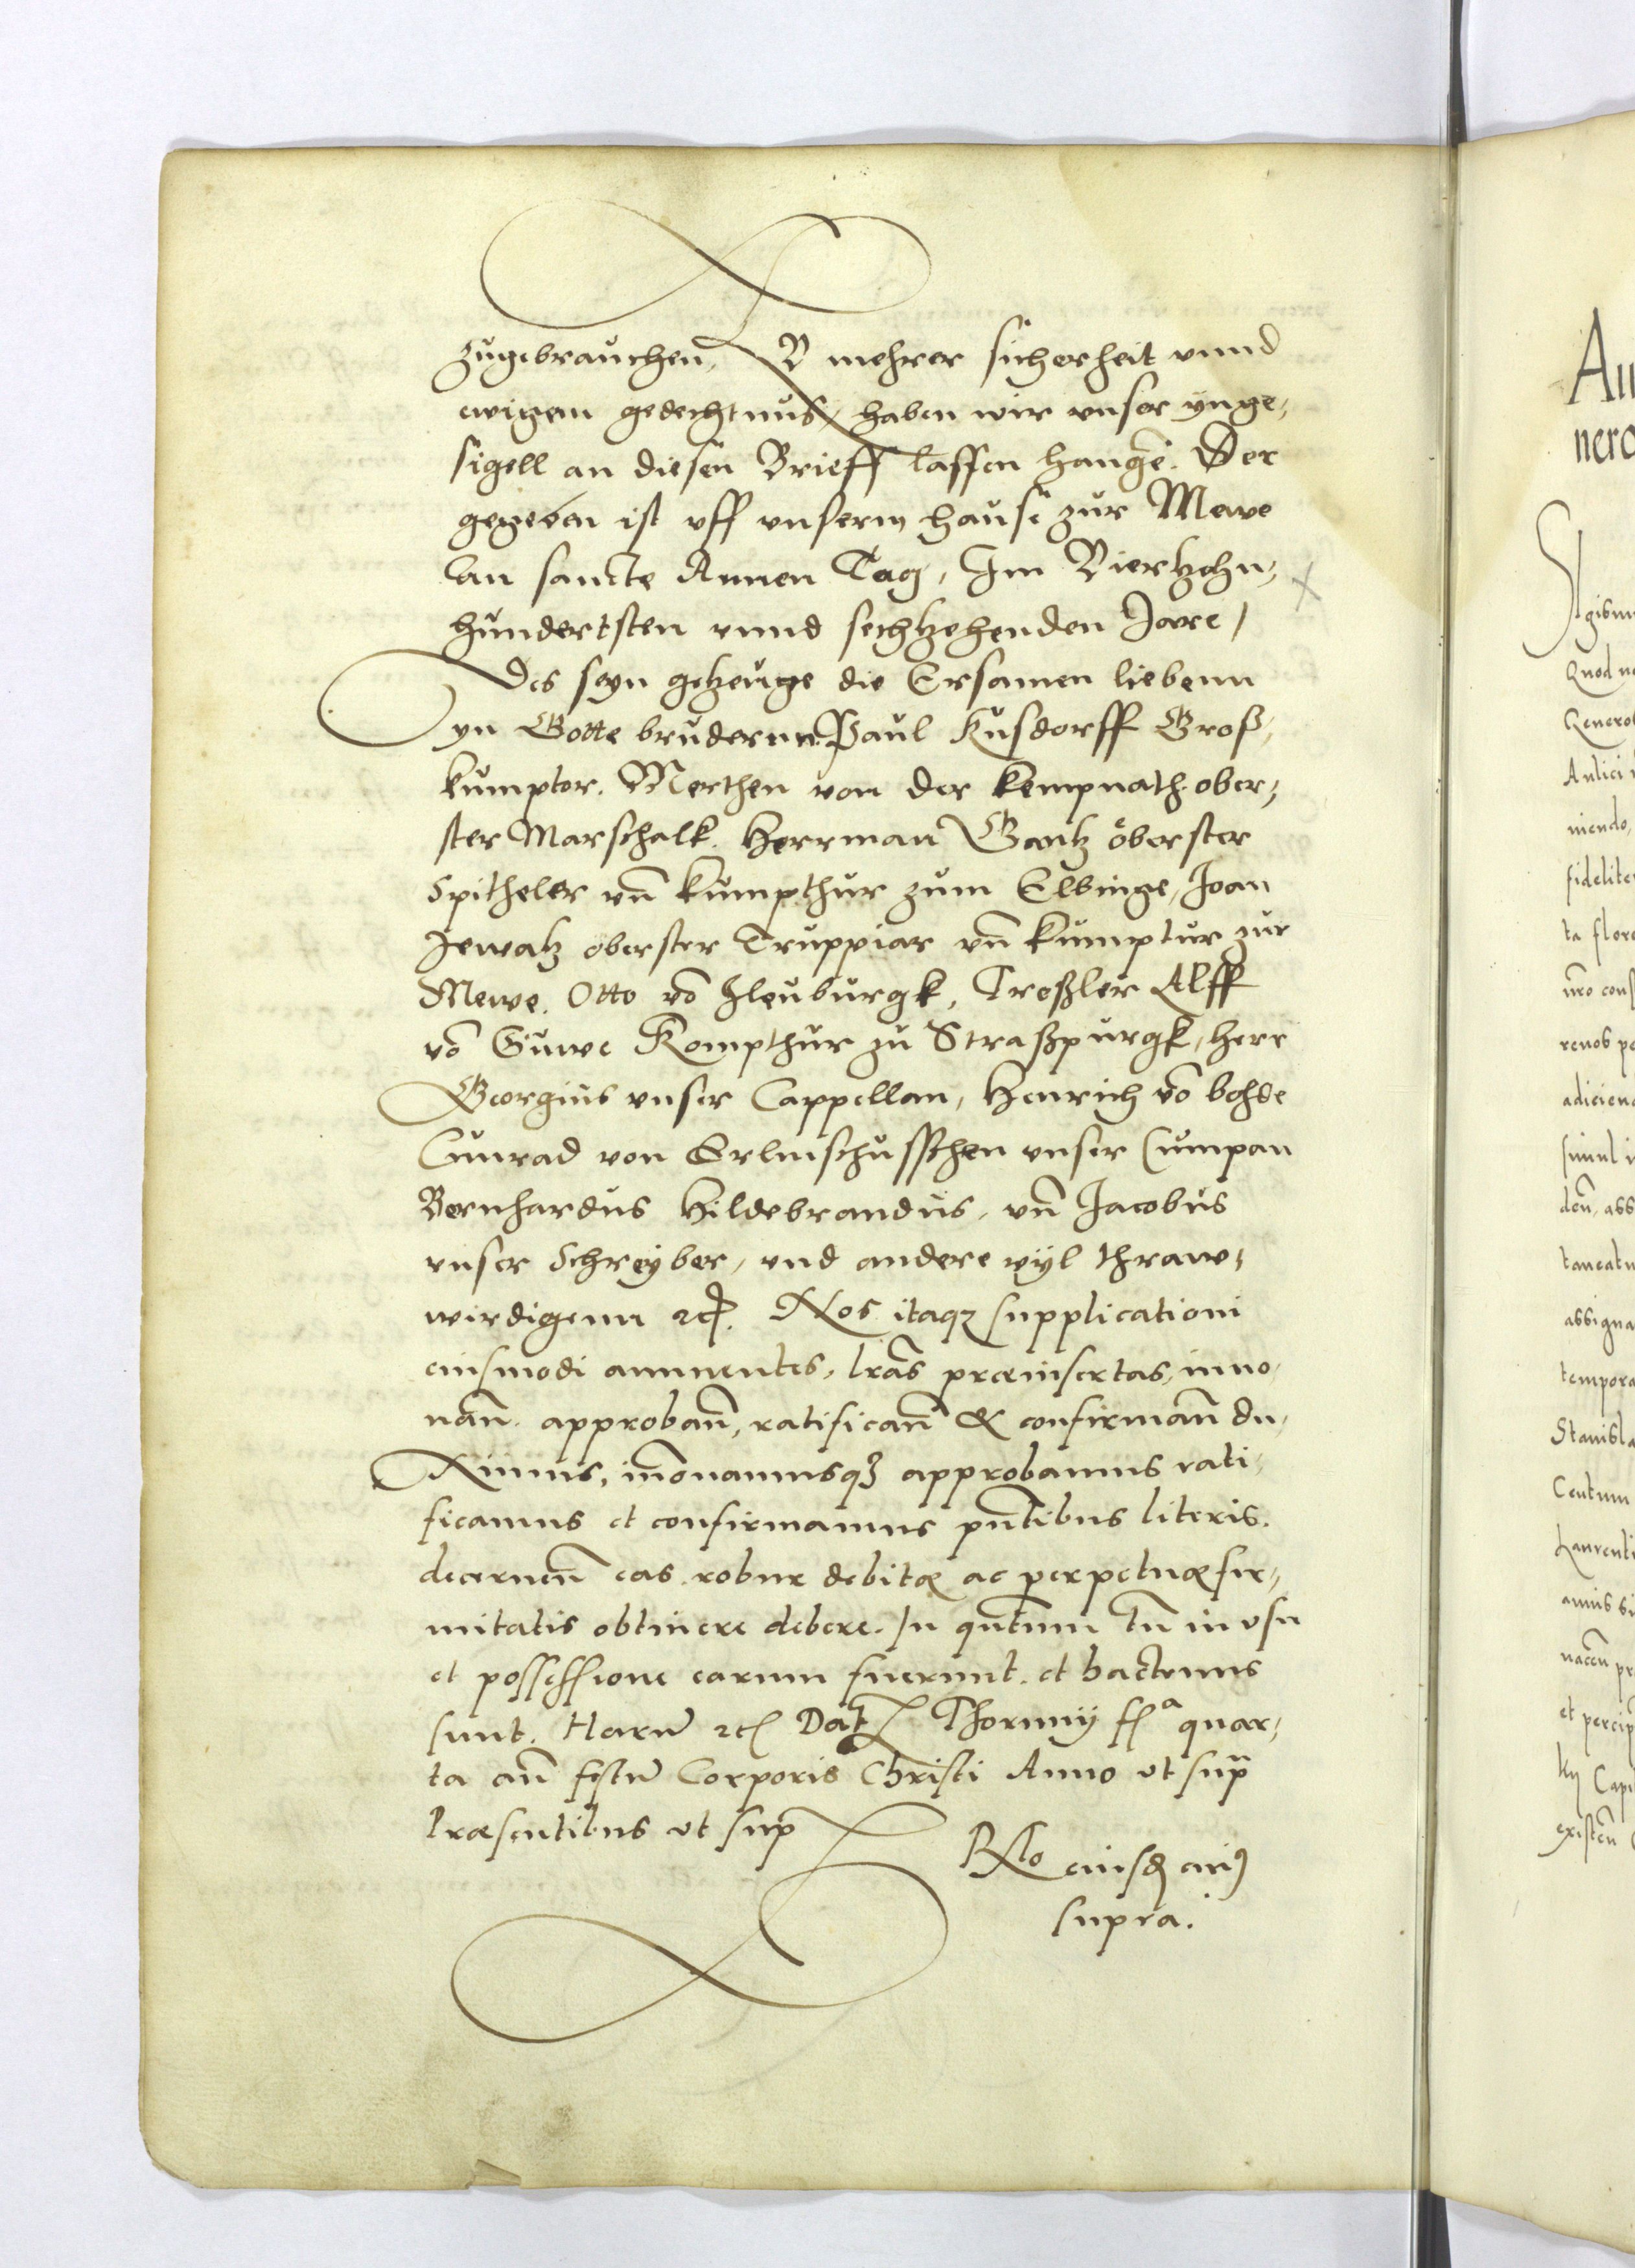 zugebrauchen, Zu mehrer sicherheit vnnd
ewigem gedechtnus, haben wir vnser ynge,
sigell an diesen Brieff lassen hangē. Der
gegeben ist vff vnserm hause zur Mewe
an sancte Annen Tag, Im Viertzehn,
hundertsten vnnd sechtzehenden Jare,
Des seyn getzeuge die Ersamen liebenn
yn Gotte brudernn. Paul Rusdorff Groß,
kumptor. Merthen von der kempnath ober,
ster Marschalk. Herrman Gantz öberster
Spitheler vn̄ kumpthur zum Elbinge, Joan
Jewatz oberster Truppiar vn̄ kumptur zur
Mewe. Otto vō Ileuburgk, Treßler Alff
vō Suwe Kompthur zu Straßpurgk, herr
Georgius vnser Cappellan, Henrich vō
Cunrad von vnser Cumpan
Bernhardus Hildebrandus, vn̄ Jacobus
vnser Schreyber, vnd andere vyl thraw,
wirdigenn ꝛc. Nos itaqꝫ supplicationi
eiusmodi annuentes, lr̄as præinsertas, inno,
uan̄. approban̄, ratifican̄ & confirman̄ du,
ximus, in̄ouamusqꝫ approbamus rati,
ficamus et confirmamus pn̄tibus literis.
decernen̄ eas robur debitæ ac perpetuæ fir,
mitatis obtinere debere. In qn̄tum tn̄ in vsu
et possessione earum fuerunt. et hactenus
sunt. Harū ꝛc Dat Thorunij fᵃ quar,
ta an̄ festū Corporis Christi Anno vt supᵃ
Præsentibus vt sup
Rlo eiusdꝫ
supra.
Quod
Aulici
niendo,
fidelite
ta flore
vr̄o cons
renos pe
adiciend
simul i
tempora
Stanisla
Centum
Laurenti
et percip